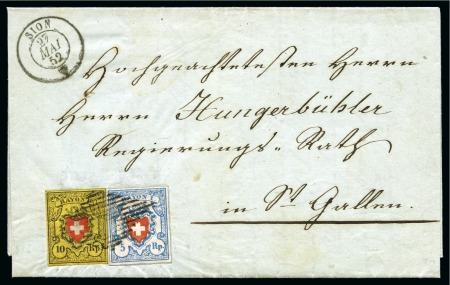 SION
27
MAI
52
Hochgeachtetesten Herrn
Herrn Hungerbühler
Regierungs=Rath
in St Gallen.
RAYON
10 Rp.
RAYON
5 Rp.